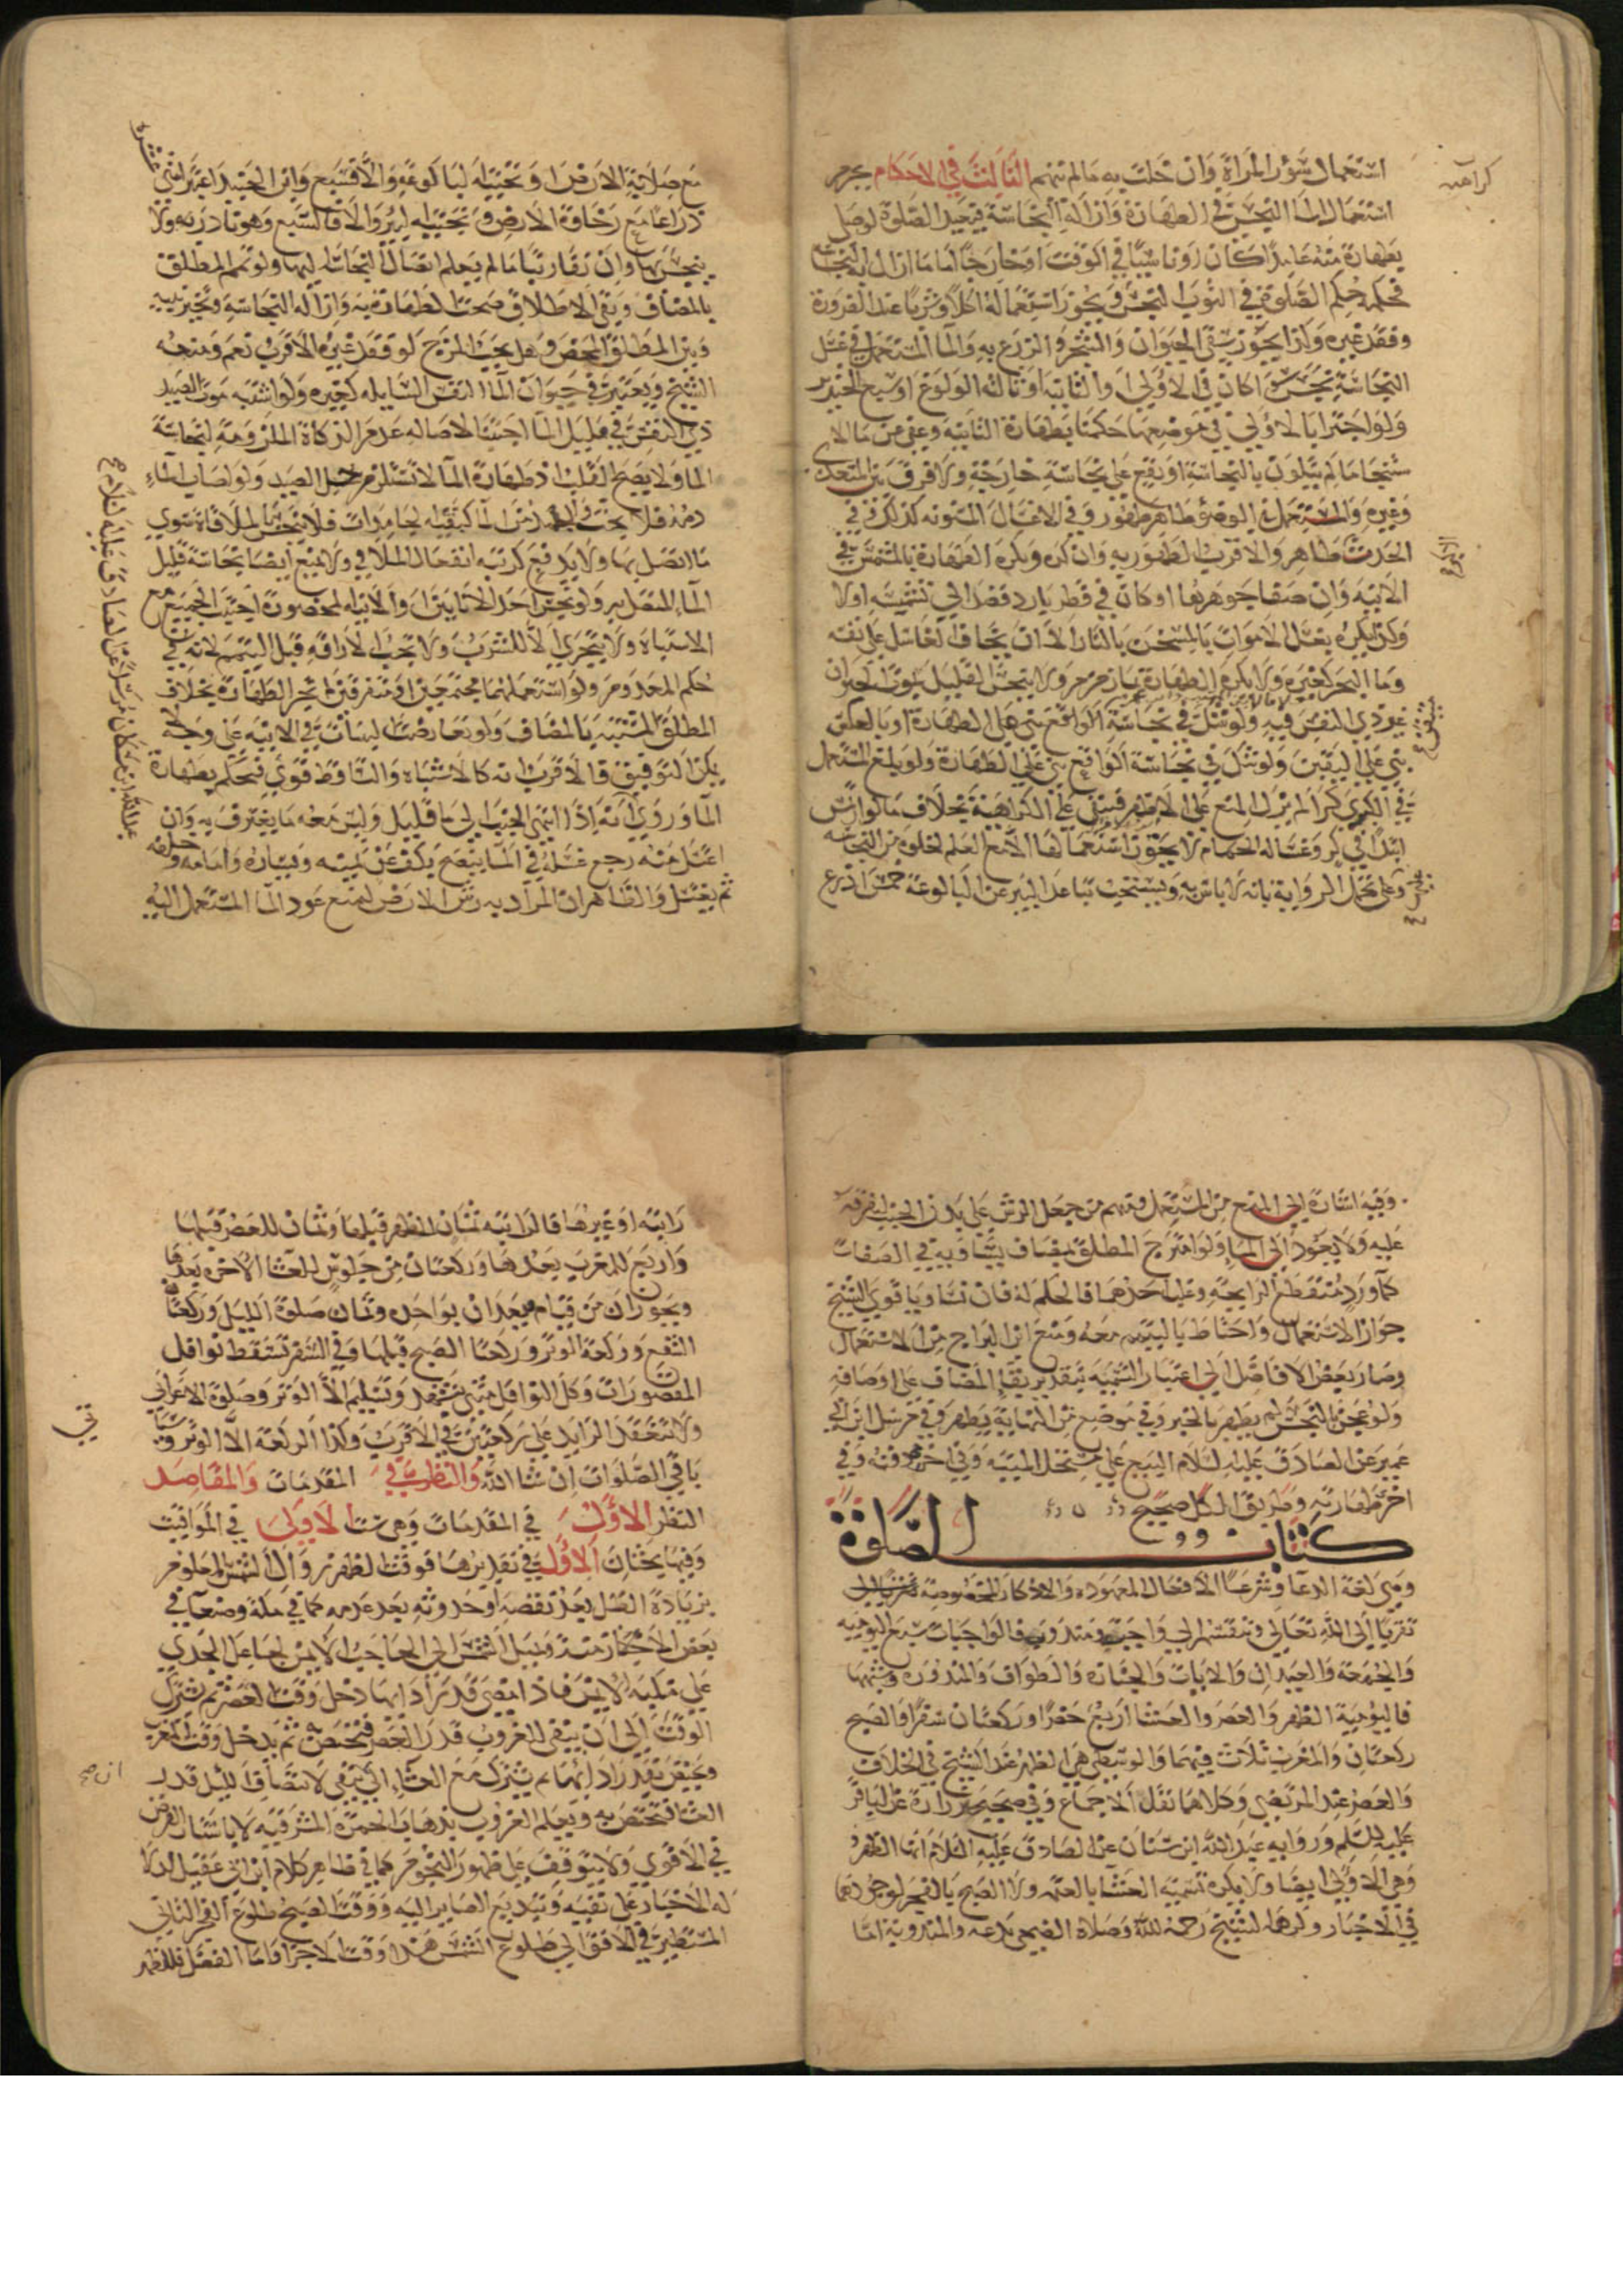 استعمال سؤر المرأة وان خلت به مالم تتهم الثالث في الاحكام يحرم
كراهة
استعمال الماء النجس في الطهارة وازالة النجاسة فيعيد الصلوة لو صلى
بطهارة منه عامدا كان او ناسيا في الوقت او خارجا اما ما ازال به النجاسة
فحكمه حكم الصلوة في الثوب النجس ويجوز استعماله اكلا وشربا عند الضرورة
وفقد غيره وكذا يجوز سقي الحيوان والشجر والزرع به والماء المستعمل في غسل
النجاسة نجس سواء كان في الاولى او الثانية او ثالثة الولوغ او سبع الخنزير
ولو اجتزا بالاولى في موضعها حكمنا بطهارة الثانية وعفي عن ماء الا
ستنجاء ما لم يتلون بالنجاسة او يقع على نجاسة خارجة ولا فرق بين المتعدي
وغيره والمستعمل في الوضوء طاهر طهور وفي الاغسال المسنونة كذلك وفي
الحدث طاهر والاقرب الطهور به وان كره ويكره الطهارة بالمشمس في
الآنية وان صفا جوهرها او كان في قطر بارد قصد الى تشميسه اولا
وكذا يكره بغسل الاموات بالمسخن بالنار الا ان يخاف الغاسل على نفسه
وماء البحر كغيره ولا يكره الطهارة بماء زمزم ولا ينجس القليل بموت الحيوان
غير ذي النفس فيه ولو شك في نجاسة الواقع بني على الطهارة او بالعكس
بني على اليقين ولو شك في نجاسة الواقع بني على الطهارة ولو بلغ المستعمل
في الكبرى كرا لم يزل المنع على الاظهر فيبقى على الكراهية بخلاف ما لو ارتمس
ابتداء في كر وغسالة الحمام لا يجوز استعمالها الا مع العلم بخلوه من النجاسة
وعلى تحمل الرواية بانه لا باس به ويستحب تباعد البير عن البالوعة خمس اذرع
مع صلابة الارض او تحتية البالوعة والا فسبع وابن الجنيد اعتبر اثني عشر
ذراعا مع رخاوة الارض وتحتية البئر والا فالسبع وهو نادر نعم ولا
ينجس بها وان تقاربا ما لم يعلم اتصال النجاسة اليها ولو تمم المطلق
بالمضاف وبقي الاطلاق صحت الطهارة به وازالة النجاسة وتخير بينه
وبين المطلق المحض وهل يجب المزج لو فقد غيره الاقرب نعم ومنعه
الشيخ ويعتبر في حيوان الماء النفس السايله كغيره ولو اشتبه موت الصيد
ذي النفس في قليل الماء اجتنبا لاصالة عدم الذكاة الملزومة لنجاسة
الماء ولا يصح القلب اذ طهارة الماء لا تستلزم حل الصيد ولو اصاب الماء
الماء المتصل به ولو نجس احد الاناءين او الآنية المحصورة اجتنب الجميع مع
الاشتباه ولا يتحرى الا للشرب ولا يجب الاراقة قبل التيمم لانه في
حكم المعدوم ولو استعملهما مجتمعين او متفرقين لم يجز الطهارة بخلاف
المطلق المشتبه بالمضاف ولو تعارضت البينات في الانية على وجه
يمكن التوفيق فالاقرب انه كالاشتباه والتساقط قوي فيحكم بطهارة
الماء وروي انه اذا انتهى الجنب الى ماء قليل وليس معه ما يغترف به وان
اغتسل منه رجع غسله في الماء ينضح بكف عن يمينه ويساره وامامه وخلفه
ثم يغتسل والظاهران المراد به رش الارض لمنع عود الماء المستعمل اليه
وفيه اشارة الى المنع من المستعمل ومنهم من جعل الرش على بدن الجنب
عليه ولا يعود الى الماء ولو امتزج المطلق بمضاف يساويه في الصفات
كماء ورد منقطع الرايحة وغلب احدهما فالحكم له فان تساويا قوى الشيخ
جواز الاستعمال واحتاط بالتيمم معه ومنع ابن البراج من الاستعمال
وصار بعض الافاضل الى اعتبار التسمية بتقدير بقاء المضاف على اوصافه
ولو عجن بالنجس لم يطهر بالخبز وفي موضع من النهاية يطهر وفي مرسل ابن ابي
عمير عن الصادق عليه السلام البيع على مستحل الميتة وفي اخرى دفنه وفي
اخرى طهارته وطريق الكل صحيح
كتاب الصلوة
وهي لغة الدعا وشرعا الافعال المعهودة والاذكار المخصوصة
تقربا الى الله تعالى وتنقسم الى واجب ومندوب فالواجبات سبع اليومية
والجمعة والعيدان والايات والجنازة والطواف والمنذورة وشبهها
فاليومية الظهر والعصر والعشا اربع حضرا وركعتان سفرا والصبح
ركعتان والمغرب ثلاث فيهما والوسطى هي الظهر عند الشيخ في الخلاف
والعصر عند المرتضى وكلاهما نقل الاجماع وفي صحيح زرارة عن الباقر
عليه السلم ورواية عبد الله ابن سنان عن الصادق عليه السلام انها الظهر
وهي الاولى ايضا ولا يكره تسمية العشا بالعتمة ولا الصبح بالفجر لوجودهما
في الاخبار وكرها الشيخ رحمة الله وصلاة الضحى بدعه والمندوبة اما
راتبة او غيرها فالراتبة ثمان للظهر قبلها وثمان للعصر قبلها
واربع للمغرب بعدها وركعتان من جلوس للعشا الاخره بعدها
ويجوزان من قيام ويعدان بواحدة وثمان صلوة الليل وركعتا
الشفع وركعة الوتر وركعتا الصبح قبلها وفي السفر تسقط نوافل
المقصورات وكل النوافل مثنى بتشهد وتسليم الا الوتر وصلوة الاعرابي
ولا تنعقد الزايد على ركعتين في الاقرب وكذا الركعة الا الوتر
باقي الصلوات ان شا الله والنظر في المقدمات والمقاصد
النظر الاول في المقدمات وهي ست الاولى في المواقيت
وفيها بحثان الاول في تقديرها فوقت الظهر زوال الشمس المعلوم
بزيادة الظل بعد نقصه او حدوثه بعد عدمه كما في مكة وصنعآ في
بعض الاحيان وميل الشمس الى الحاجب الايمن لجاعل الجدي
على منكبه الايمن فاذا مضى قدر ادائها دخل وقت العصر ثم تشترك
الوقت الى ان يبقى للغروب قدر العصر فتختص به ثم يدخل وقت المغرب
ويختص بقدر ادائها ثم يشترك مع العشاء الى ان يبقى لانتصاف الليل قدر
العشا فتختص به ويعلم الغروب بذهاب الحمرة المشرقية لا باستتار القرص
في الاقوى ولا يتوقف على ظهور النجوم كما في ظاهر كلام ابن ابي عقيل
له الاخبار على تقية وتبديع الصاير اليه ووقت الصبح طلوع الفجر الثاني
المستطير في الافق الى طلوع الشمس هذا وقت الاجزا واما الفضل فللظهر